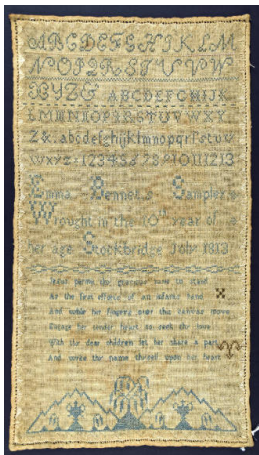 ABCDEFGHIJKLM
NOPQRSTUVW
XYZ& ABCDEFGHIJK
LMNOPQRSTUVWXY
Z& abcdefghijklmnopqrstuv
wxyz 12345678910111213
Emma Sampler
Wrought in the 10th year of
her age Stockbridge July 1813
Jesus permit thy gracious name to stand
As the first efforts of an infants hand
And while her fingers over this canvas move
Engage her tender heart to seek thy love
With thy dear children let her share a part
And write thy name thyself upon her heart